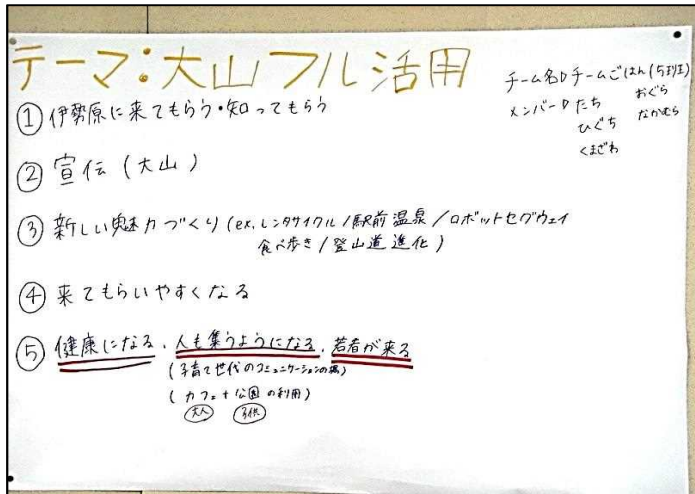 テーマ:大山フル活用
チーム名▷チームごはん(5班)
メンバー▷たち おぐら
ひぐち なかむら
くまざわ
① 伊勢原に来てもらう・知ってもらう
② 宣伝(大山)
③ 新しい魅力づくり(ex. レンタサイクル/駅前温泉/ロボットセグウェイ
食べ歩き/登山道進化)
④ 来てもらいやすくなる
⑤ 健康になる、人も集うようになる、若者が来る
(子育て世代のコミュニケーションの場)
(カフェ+公園の利用)
大人 子供